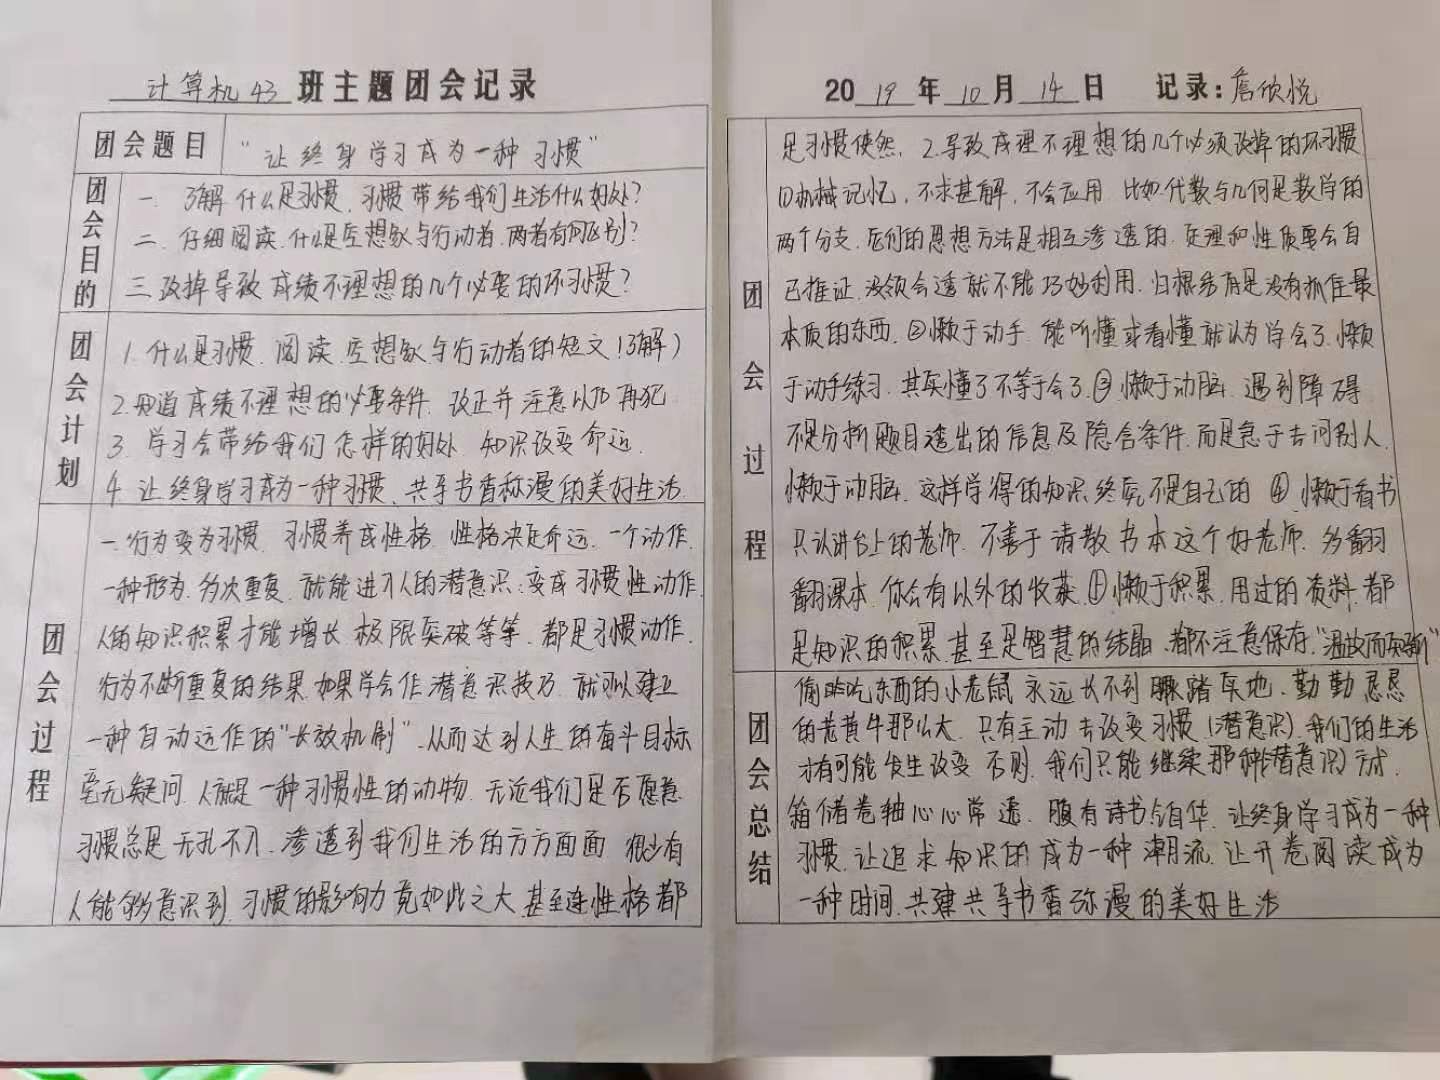 计算机43班主题团会记录
团会题目
"让终身学习成为一种习惯"
团会目的
一、了解什么是习惯、习惯带给我们生活什么好处?
二、仔细阅读、什么是空想家与行动者、两者有何区别?
三、改掉导致成绩不理想的几个必要的坏习惯?
团会计划
1. 什么是习惯、阅读、空想家与行动者的短文(了解)
2. 知道成绩不理想的必要条件、改正并注意以防再犯
3. 学习会带给我们怎样的好处、知识改变命运、
4. 让终身学习成为一种习惯、共享书香弥漫的美好生活.
团会过程
一、行为变为习惯、习惯养成性格、性格决定命运、一个动作、
一种形为、多次重复、就能进入人的潜意识;变成习惯性动作、
人的知识积累才能增长、极限突破等等、都是习惯动作、
行为不断重复的结果、如果学会作潜意识技巧、就可以建立
一种自动运作的"长效机制"、从而达到人生的奋斗目标
毫无疑问、人就是一种习惯性的动物、无论我们是否愿意
习惯总是无孔不入、渗透到我们生活的方方面面、很少有
人能够意识到、习惯的影响力竟如此之大、甚至连性格都
2019年10月14日 记录:詹欣悦
团会过程
是习惯使然、2.导致成理不理想的几个必须改掉的坏习惯
①机械记忆,不求甚解,不会应用、比如代数与几何是数学的
两个分支、它们的思想方法是相互渗透的、定理和性质要会自
己推证、没领会透就不能巧妙利用、归根结底是没有抓住最
本质的东西、②懒于动手、能听懂或看懂就认为学会了、懒
于动手练习、其实懂了不等于会了、③懒于动脑、遇到障碍
不是分析题目透出的信息及隐含条件、而是急于去问别人、
懒于动脑、这样学得的知识终究不是自己的④懒于看书
只认讲台上的老师、不善于请教书本这个好老师、多翻
翻课本、你会有以外的收获、①懒于积累、用过的资料、都
是知识的积累、甚至是智慧的结晶、都不注意保存、"温故而知新"
团会总结
偷吃东西的小老鼠永远长不到脚踏实地、勤勤恳恳
的老黄牛那么大、只有主动去改变习惯(潜意识)、我们的生活
才有可能发生改变、否则、我们只能继续那种(潜意识)方式、
箱储卷轴心心常遗、腹有诗书气自华、让终身学习成为一种
习惯、让追求知识的成为一种潮流、让开卷阅读成为
一种时间、共建共享书香弥漫的美好生活